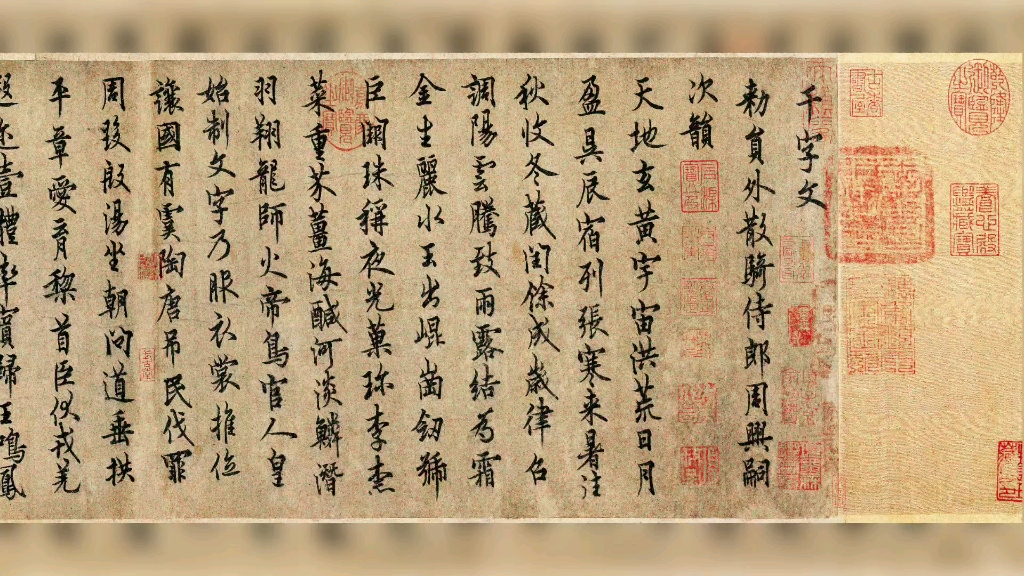 千字文
勅員外散騎侍郎周興嗣
次韻
天地玄黃宇宙洪荒日月
盈昃辰宿列張寒来暑往
秋收冬藏閏餘成歲律召
調陽雲騰致雨露結為霜
金生麗水玉出崐崗劒號
巨闕珠稱夜光菓珍李柰
菜重芥薑海醎河淡鱗潛
羽翔龍師火帝鳥官人皇
始制文字乃服衣裳推位
讓國有虞陶唐弔民伐罪
周發殷湯坐朝問道垂拱
平章愛育黎首臣伏戎羌
遐迩壹體率賓歸王鳴鳳